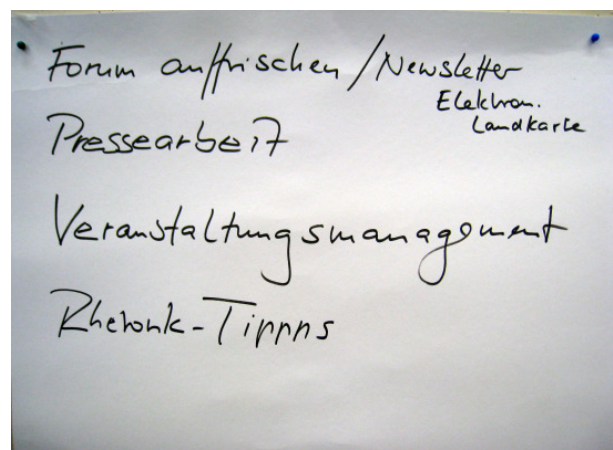 Forum auffrischen / Newsletter
Elektron.
Landkarte
Pressearbeit
Veranstaltungsmanagement
Rhetorik-Tippps